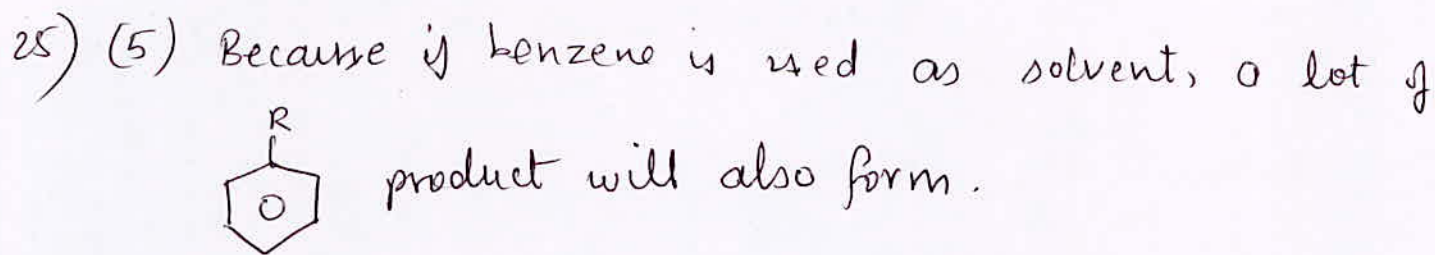 25) (5) Because if benzene is used as solvent, a lot of
R
product will also form.